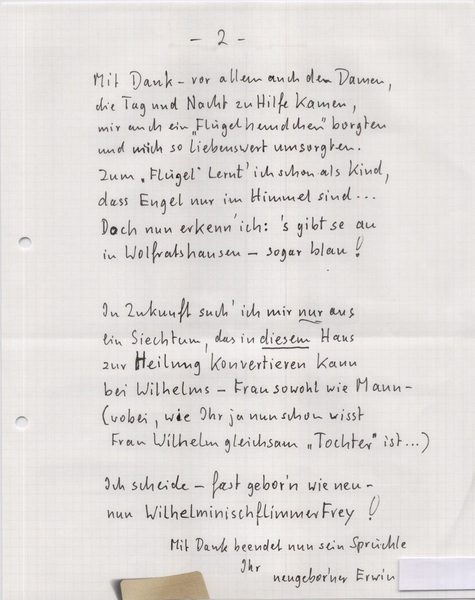 - 2 -
Mit Dank – vor allem auch den Damen,
die Tag und Nacht zu Hilfe kamen,
mir auch ein „Flügelhemdchen" borgten
und mich so liebenswert umsorgten.
Zum „Flügel" lernt' ich schon als Kind,
dass Engel nur im Himmel sind...
Doch nun erkenn' ich: 's gibt se au
in Wolfratshausen – sogar blau!
In Zukunft such' ich mir nur aus
ein Siechtum, das in diesem Haus
zur Heilung konvertieren kann
bei Wilhelms – Frau sowohl wie Mann –
(wobei, wie Ihr ja nun schon wisst
Frau Wilhelm gleichsam „Tochter" ist...)
Ich scheide – fast gebor'n wie neu –
nun WilhelminischflimmerFrey!
Mit Dank beendet nun sein Sprüchle
Ihr
neugebor'ner Erwin